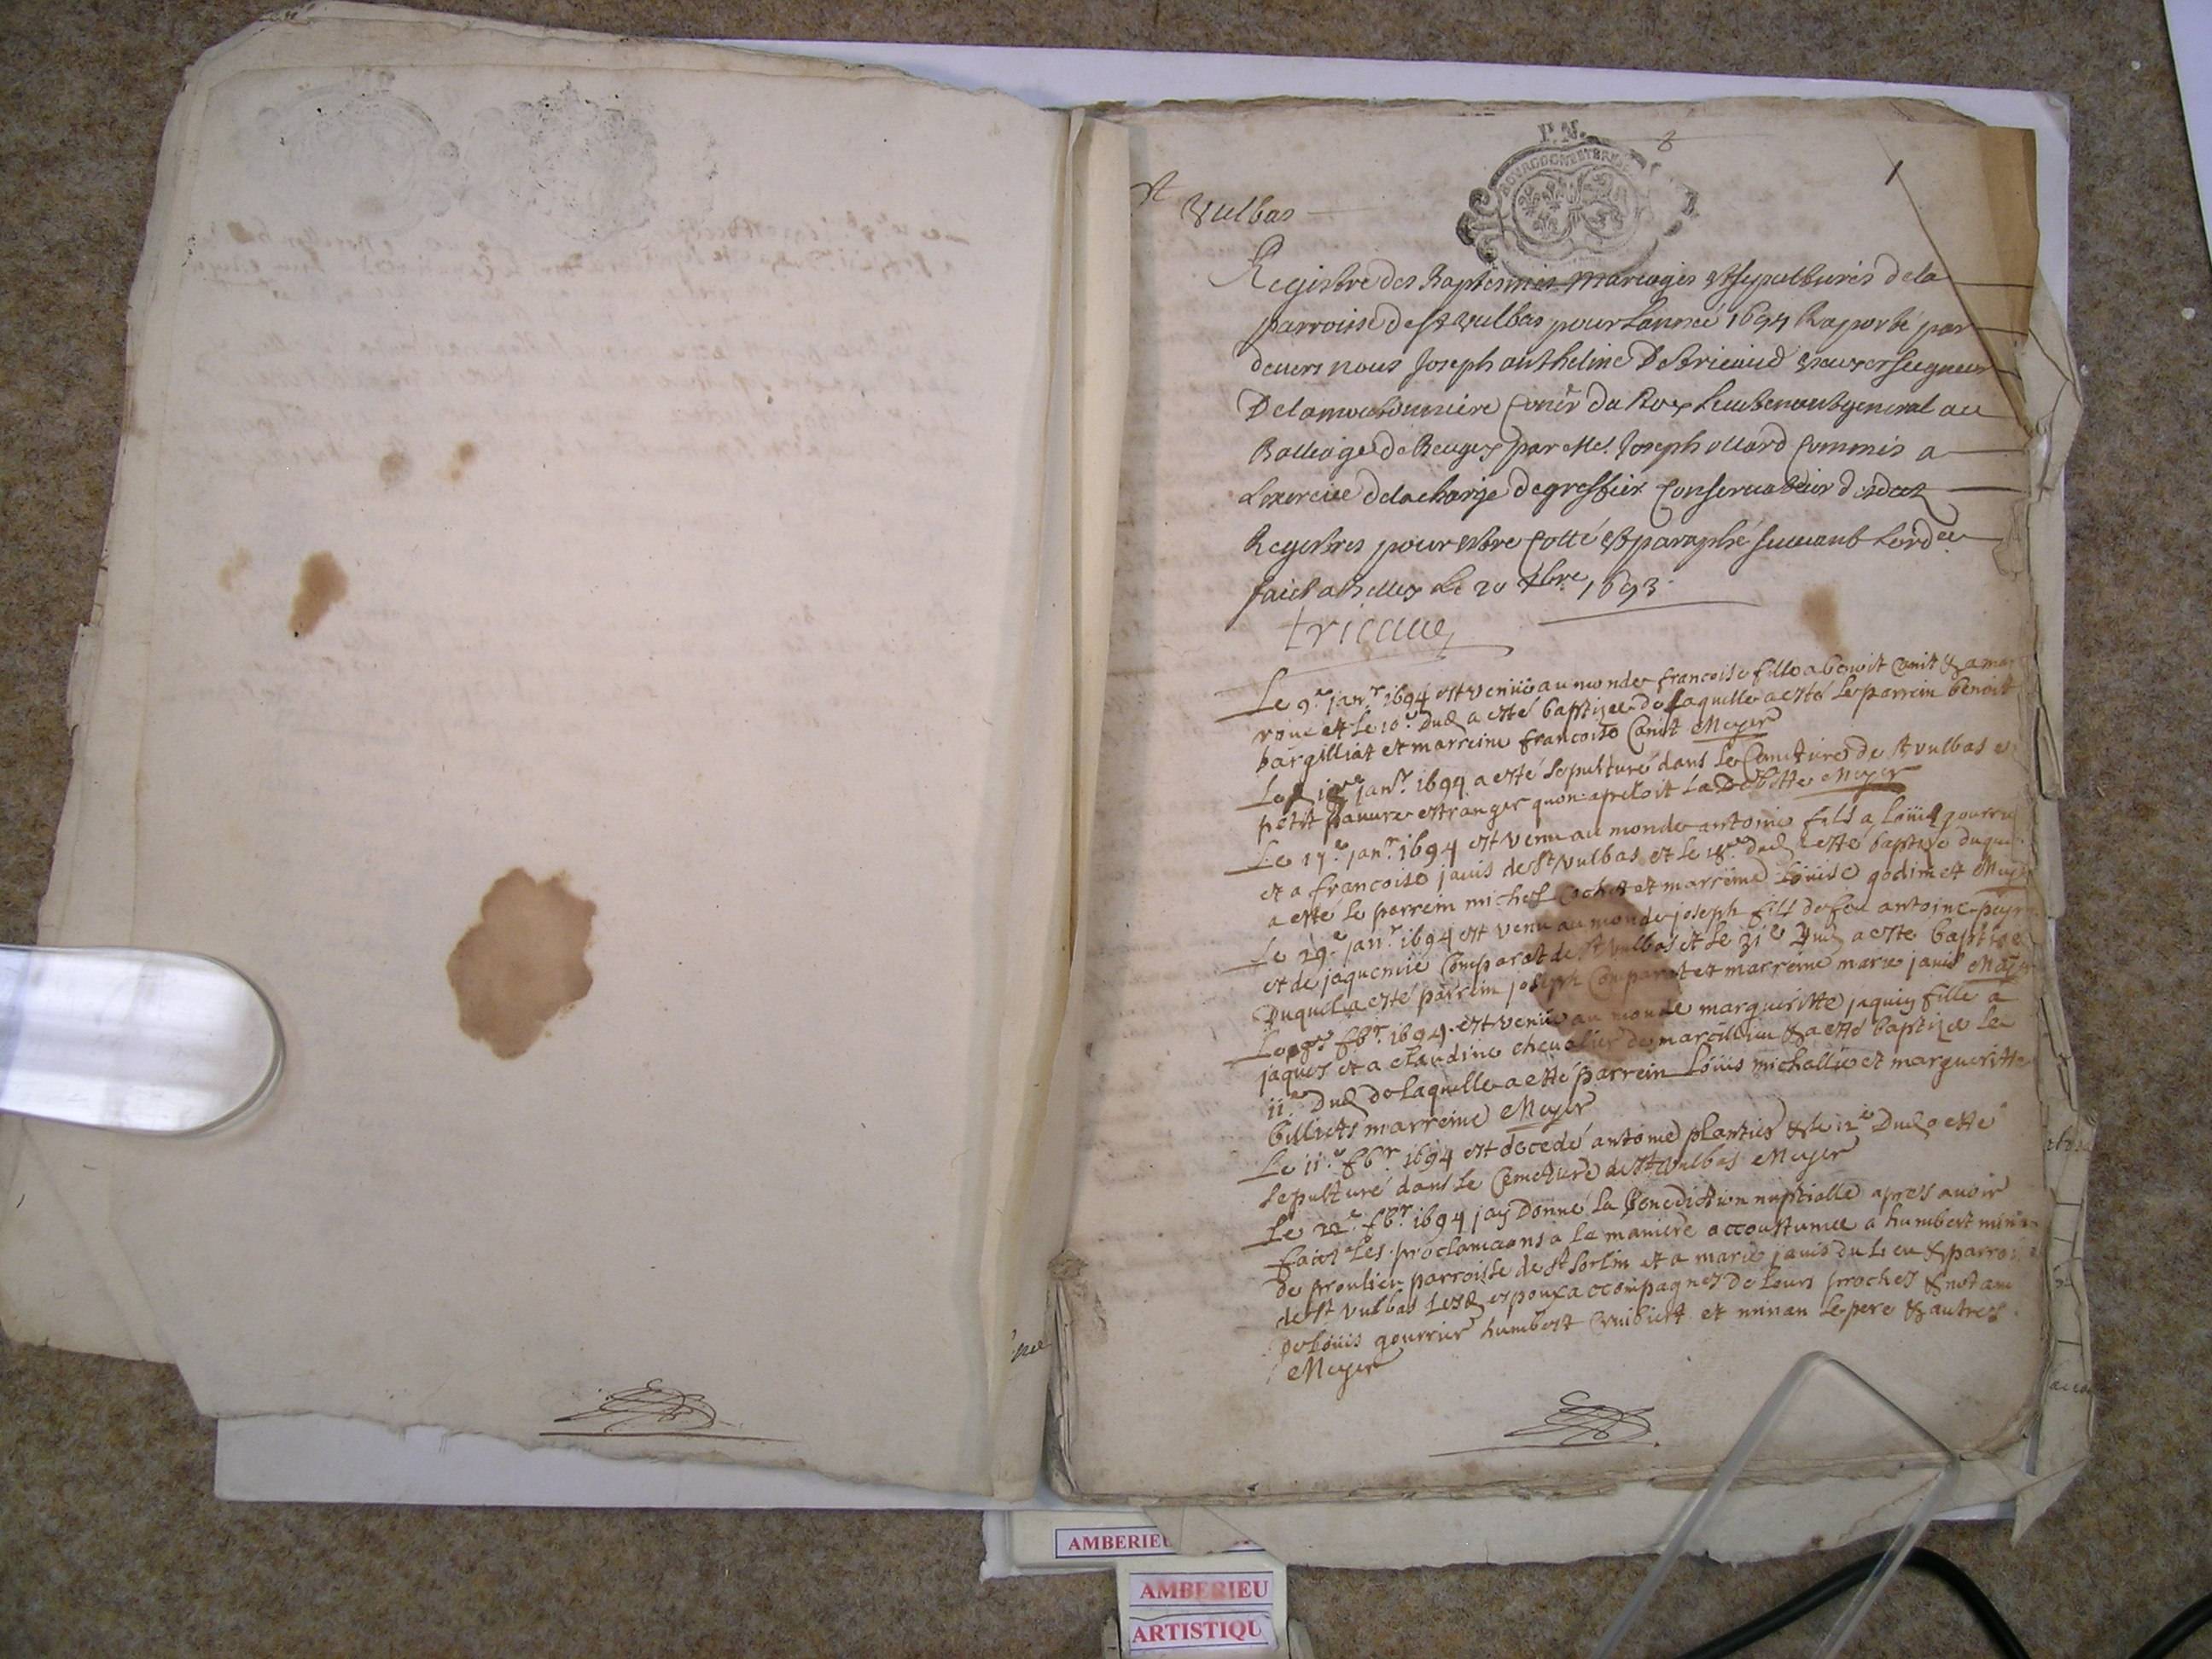 P.N.
BOURGOGNE ET BRESSE
1
St
Vulbas
Registre des Baptesmes Mariages et sepultures de la
parroisse de st vulbas pour lannée 1694 Raporté par
devers nous Joseph anthelme De tricaud seigneur
De lamoutonniere Coner du Roy Lieutenant general au
Balliage de Beugey par Me Joseph ollard Commis a
Lexercice de la charge de greffier Conservateur desdts
Registres pour estre Cotté et paraphé suivant Lord
faict a Belley Le 20 xbre 1693
tricaud
Le 9e janr 1694 est venüe au monde francoise fille a benoit Canit & a
et le 10e Dud a esté baptizee de laquelle a esté le parrein benoit
bargilliat et marreine francoise Canit Meyer
Le janr 1694 a esté sepulturé dans le Cemetiere de st vulbas
petit pauvre estranger quon apeloit La Meyer
Le 17e janr 1694 est venu au monde antoine fils a Loüis gourru
et a francoise janis de st vulbas et le 18e dud a esté baptizé duquel
a esté le parrein michel Cochet et marreine Loüise godimet Meyer
Le 29e janr 1694 est venu au monde joseph fils de feu antoine
et de jaquemie Comparat de st vulbas et le 31e Dud a este baptizé
Duquel a esté parrein joseph Comparat et marreine marie janis Meyer
Le 9e fbr 1694 est venüe au monde margueritte jaquin fille a
jaques et a claudine chevalier de marcillieu & a esté baptizée le
11e Dud de laquelle a esté parrein Loüis michallie et margueritte
billiets marreine Meyer
Le 11e fbr 1694 est decedé antoine plantier & le 12e Dud a esté
sepulturé dans le Cemetiere de st vulbas Meyer
Le 22e fbr 1694 jay Donné La Benediction nuptialle apres avoir
faict les proclamaons a la maniere accoustumee a humbert
de proulieu parroisse de st sorlin et a marie janis du lieu & parroisse
de st vulbas Lesd espoux accompagnes De leurs proches & notam
De Loüis gourrier humbert et le pere & autres
Meyer
AMBERIEU
AMBERIEU
ARTISTIQU